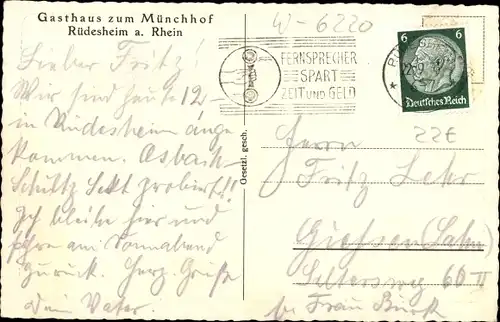 Gasthaus zum Münchhof
Rüdesheim a. Rhein
W-6220
FERNSPRECHER
SPART
ZEIT UND GELD
6 6
Deutsches Reich
22E
Gesetzl. gesch.
Lieber Fritz!
Wir sind heute 12
in Rüdesheim ange
kommen. Asbach
Schultz Sekt probiert!!
Ich bleibe hier und
fahre am Sonnabend
zurück. Herz. Grüße
Dein Vater.
Herrn
Fritz Lehr
Giessen (Lahn)
Seltersweg 60 II
bei Frau